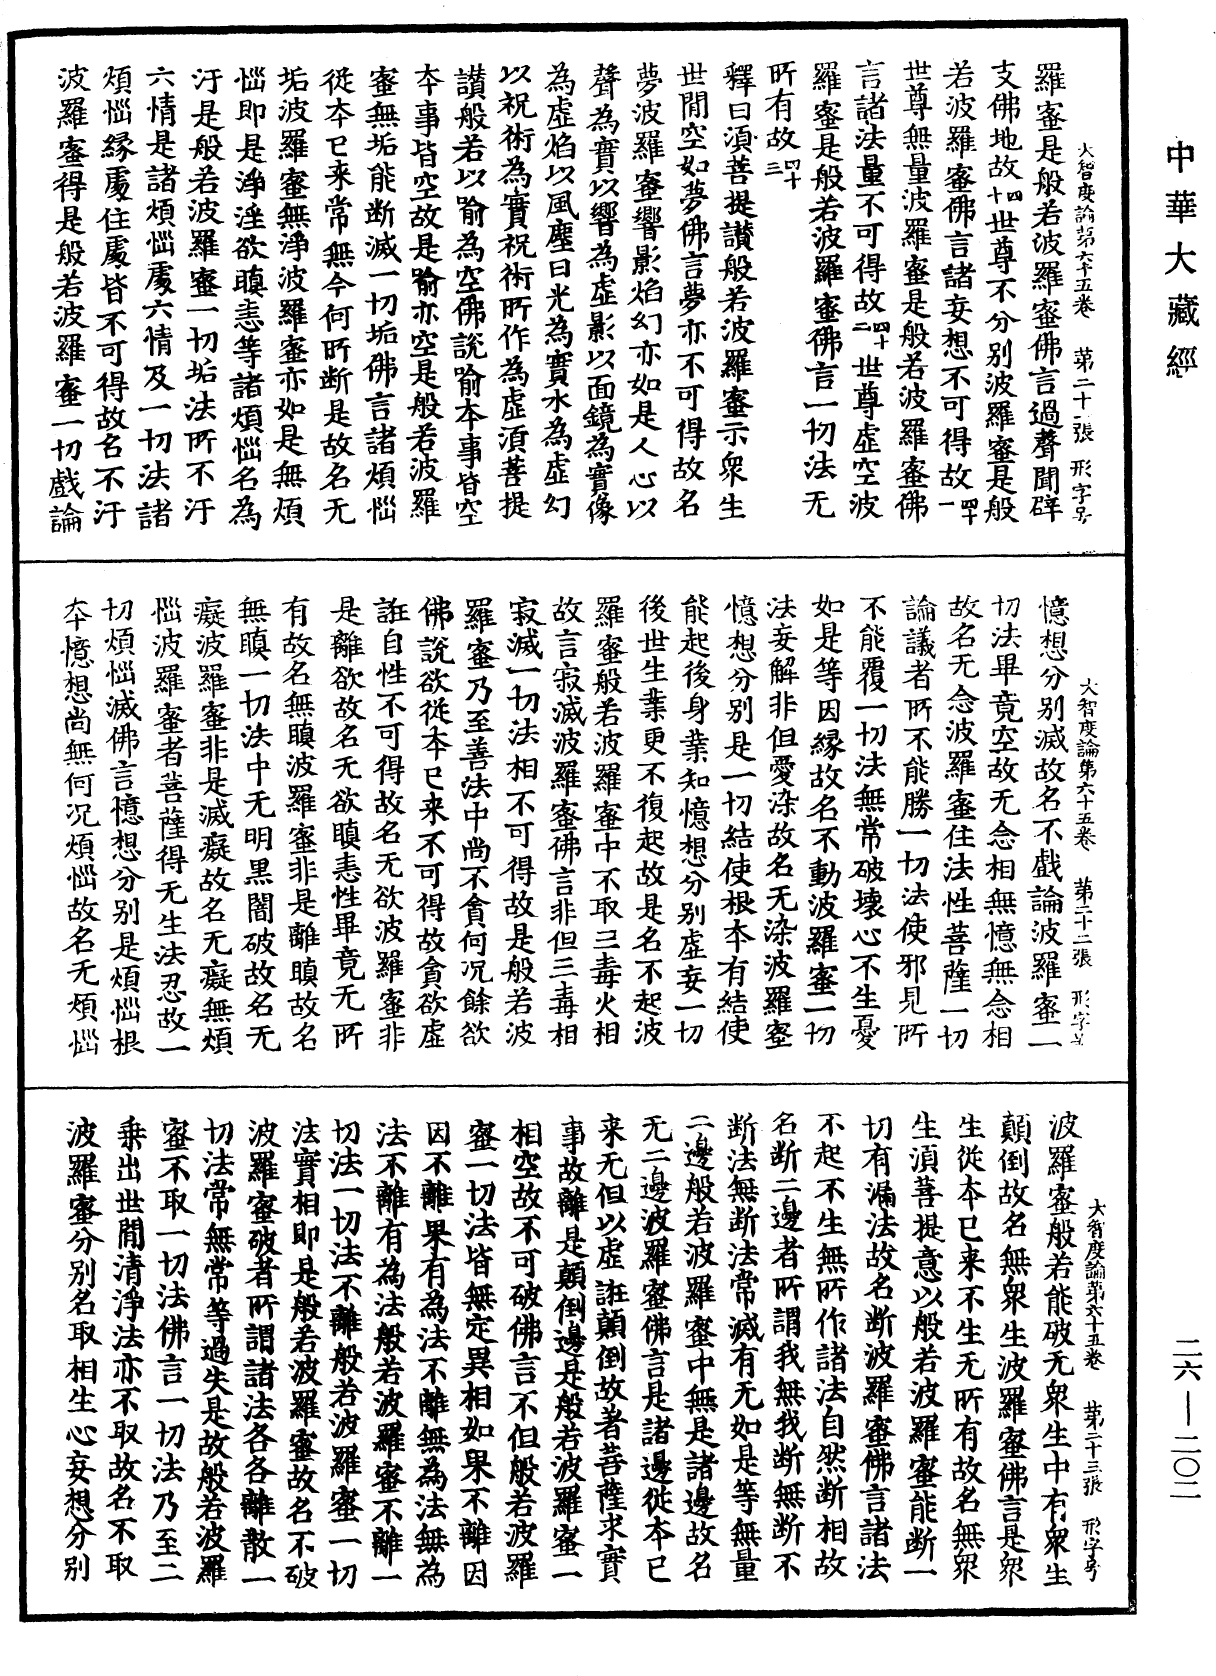 中華大藏經
大智度論第六十五卷　第二十張　形字号
羅蜜是般若波羅蜜佛言過聲聞辟
支佛地故四十世尊不分别波羅蜜是般
若波羅蜜佛言諸妄想不可得故四十一
世尊無量波羅蜜是般若波羅蜜佛
言諸法量不可得故四十二世尊虛空波
羅蜜是般若波羅蜜佛言一切法无
所有故四十三
釋曰須菩提讃般若波羅蜜示衆生
世間空如夢佛言夢亦不可得故名
夢波羅蜜響影焰幻亦如是人心以
聲為實以響為虛影以面鏡為實像
為虛焰以風塵日光為實水為虛幻
以祝術為實祝術所作為虛須菩提
讃般若以喻為空佛說喻本事皆空
本事皆空故是喻亦空是般若波羅
蜜無垢能断滅一切垢佛言諸煩惱
從夲已来常無今何所断是故名无
垢波羅蜜無淨波羅蜜亦如是無煩
惱即是淨淫欲瞋恚等諸煩惱名為
汙是般若波羅蜜一切垢法所不汙
六情是諸煩惱處六情及一切法諸
煩惱緣處住處皆不可得故名不汙
波羅蜜得是般若波羅蜜一切戲論
大智度論第六十五卷　第二十二張　形字号
憶想分别滅故名不戲論波羅蜜一
切法畢竟空故无念相無憶無念相
故名无念波羅蜜住法性菩薩一切
論議者所不能勝一切法使邪見所
不能覆一切法無常破壞心不生憂
如是等因緣故名不動波羅蜜一切
法妄解非但愛染故名无染波羅蜜
憶想分别是一切結使根夲有結使
能起後身業知憶想分别虛妄一切
後世生業更不復起故是名不起波
羅蜜般若波羅蜜中不取三毒火相
故言寂滅波羅蜜佛言非但三毒相
寂滅一切法相不可得故是般若波
羅蜜乃至善法中尚不貪何況餘欲
佛說欲從夲已来不可得故貪欲虛
誑自性不可得故名无欲波羅蜜非
是離欲故名无欲瞋恚性畢竟无所
有故名無瞋波羅蜜非是離瞋故名
無瞋一切法中无明黑闇破故名无
癡波羅蜜非是滅癡故名无癡無煩
惱波羅蜜者菩薩得无生法忍故一
切煩惱滅佛言憶想分别是煩惱根
夲憶想尚無何況煩惱故名无煩惱
大智度論第六十五卷　第二十三張　形字号
波羅蜜般若能破无衆生中有衆生
顛倒故名無衆生波羅蜜佛言是衆
生從夲已来不生无所有故名無衆
生須菩提意以般若波羅蜜能断一
切有漏法故名断波羅蜜佛言諸法
不起不生無所作諸法自然断相故
名断二邊者所謂我無我断無断不
断法無断法常滅有无如是等無量
二邊般若波羅蜜中無是諸邊故名
无二邊波羅蜜佛言是諸邊從夲已
来无但以虛誑顛倒故著菩薩求實
事故離是顛倒邊是般若波羅蜜一
相空故不可破佛言不但般若波羅
蜜一切法皆無定異相如果不離因
因不離果有為法不離無為法無為
法不離有為法般若波羅蜜不離一
切法一切法不離般若波羅蜜一切
法實相即是般若波羅蜜故名不破
波羅蜜破者所謂諸法各各離散一
切法常無常等過失是故般若波羅
蜜不取一切法佛言一切法乃至二
乗出世間清淨法亦不取故名不取
波羅蜜分别名取相生心妄想分别
二六—二〇二